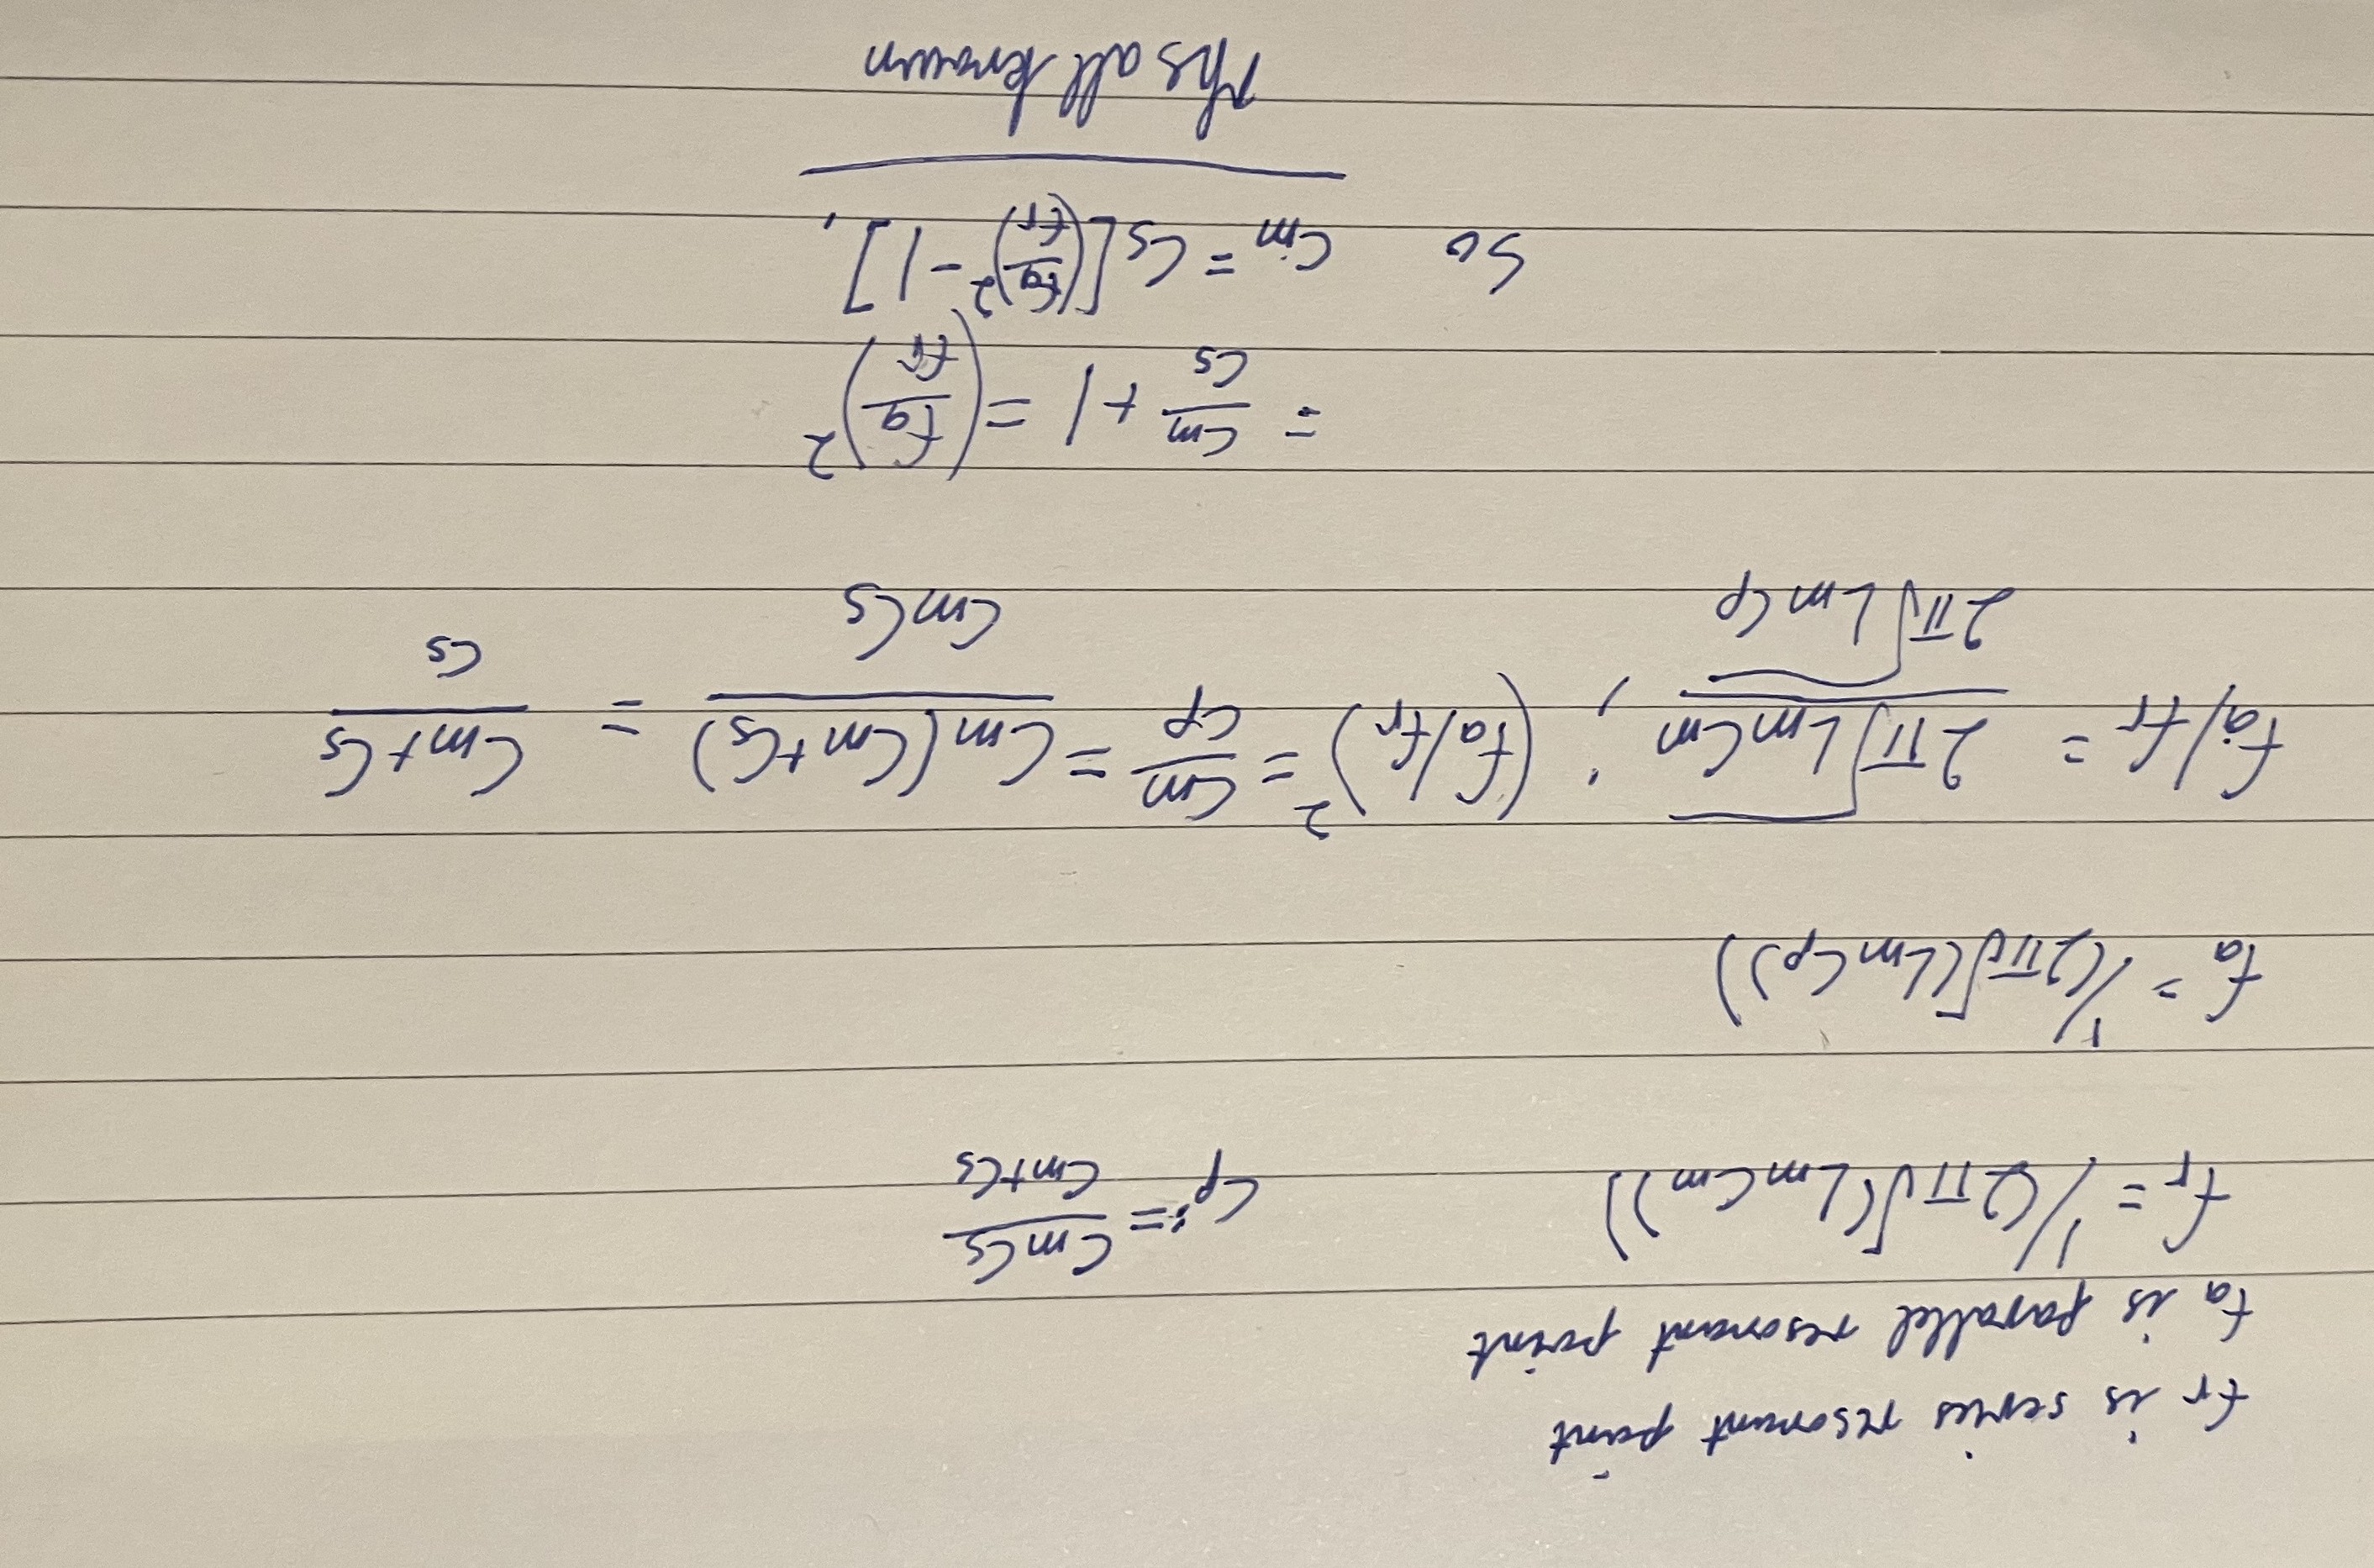 fr is series resonant point
fa is parallel resonant point
fr = 1/(2π√(LmCm))
Cp := CmCs / Cm+Cs
fa = 1/(2π√(LmCp))
fa/fr = 2π√LmCm / 2π√LmCp ; (fa/fr)² = Cm/Cp = Cm(Cm+Cs) / CmCs = Cm+Cs / Cs
= Cm/Cs + 1 = (fa/fr)²
So Cm = Cs[(fa/fr)² - 1].
rhs all known